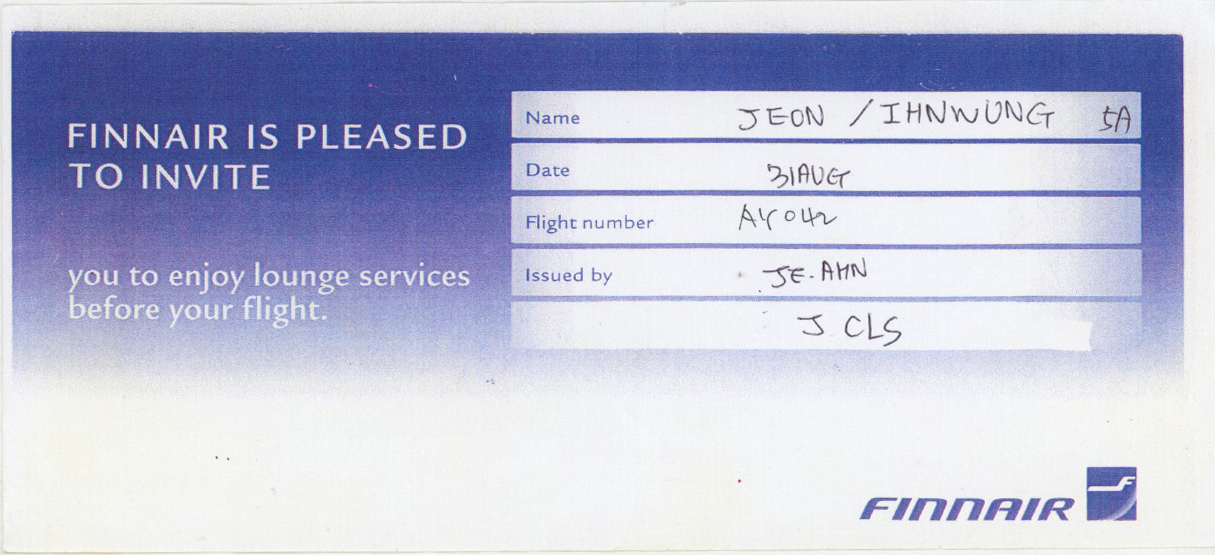 FINNAIR IS PLEASED
TO INVITE
you to enjoy lounge services
before your flight.
Name JEON / IHNWUNG 5A
Date 31AUG
Flight number AY042
Issued by JE.AHN
J CLS
FINNAIR